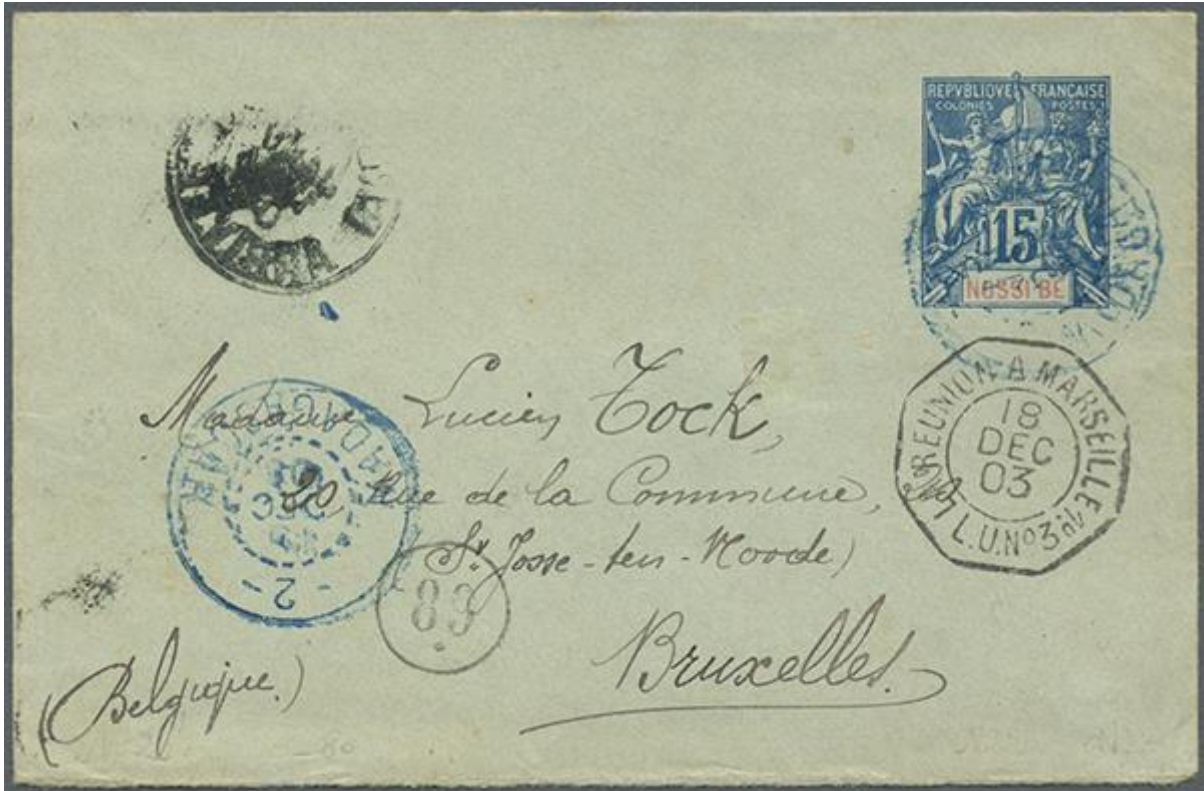 REPVBLIQVE FRANÇAISE
COLONIES POSTES
15
NOSSI BÉ
LA REUNION A MARSEILLE
18
DEC
03
L.U.Nº3
Madame Lucien Tock,
20, Rue de la Commune,
St Josse-ten-Noode)
Bruxelles
(Belgique.)
MADAGASCAR
DEC
2
89